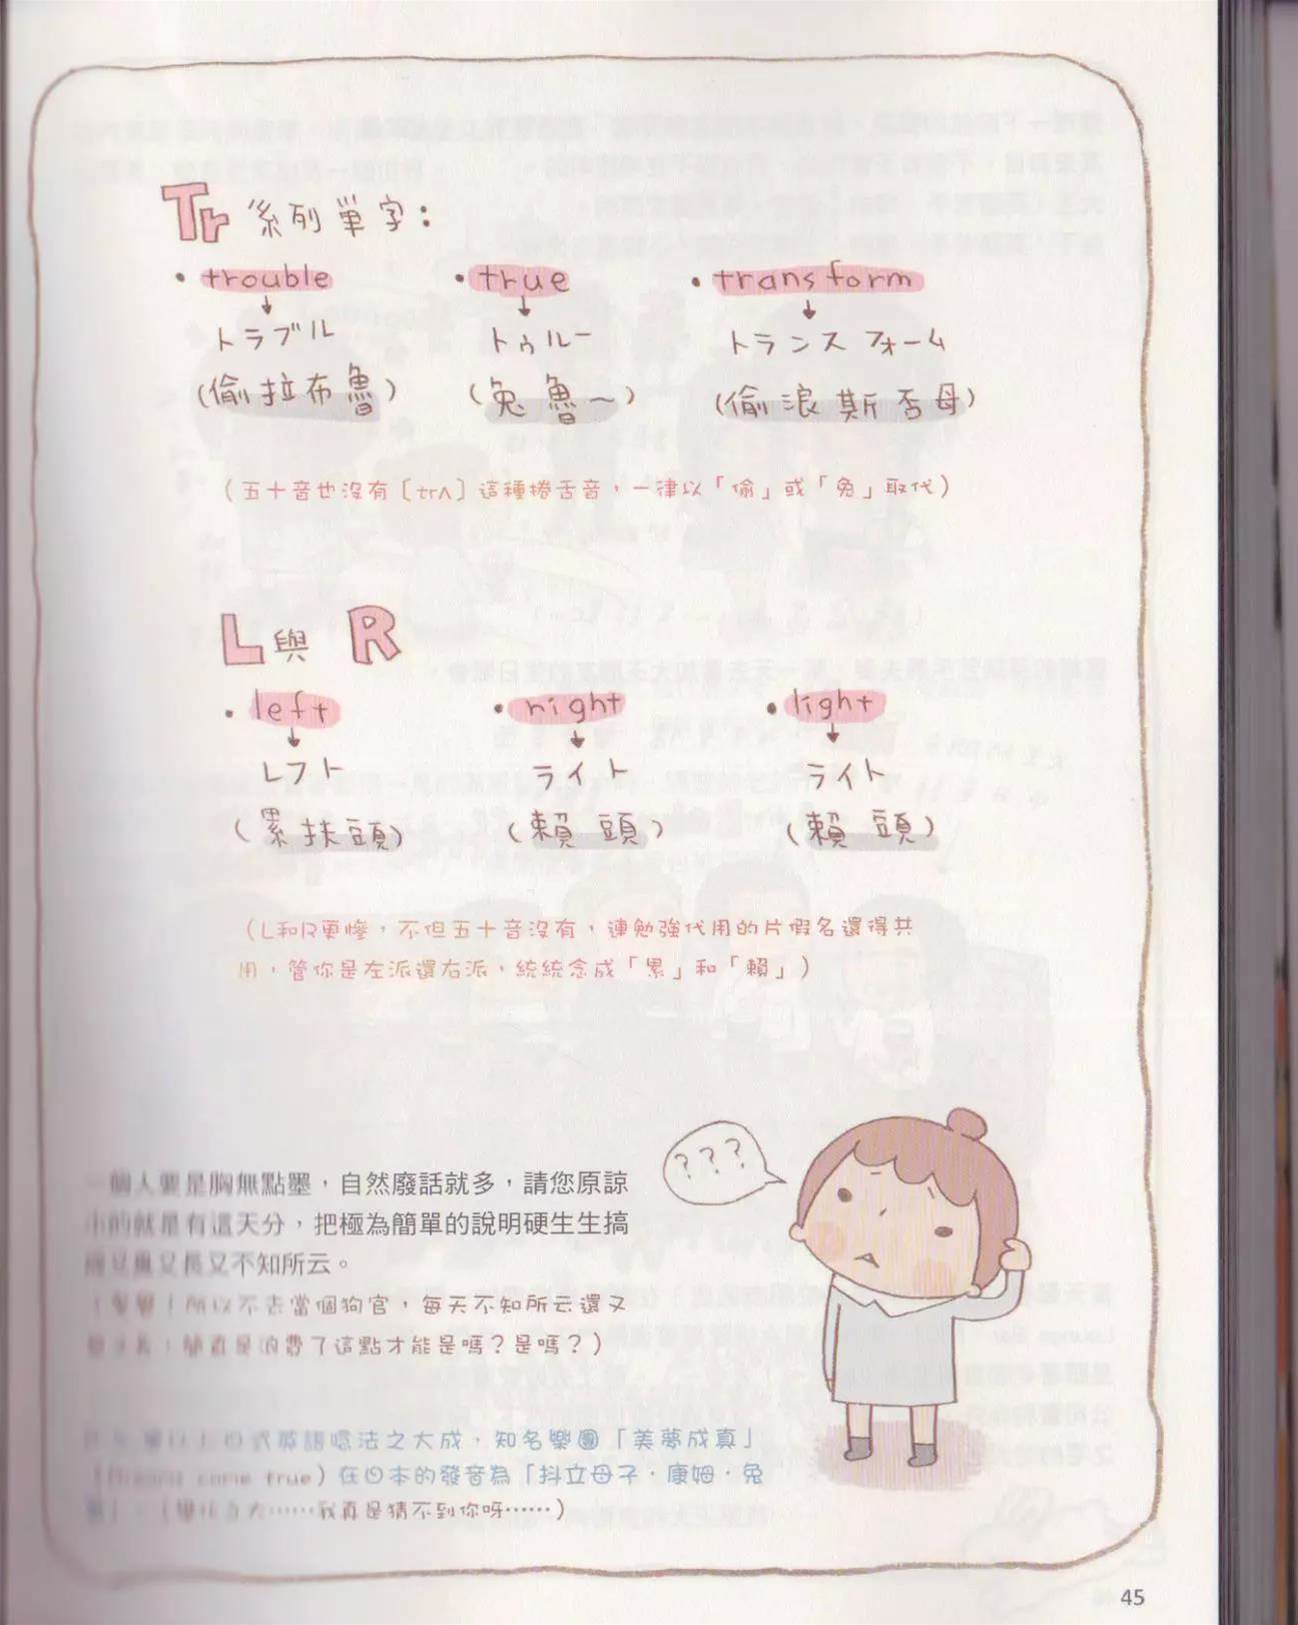 Tr系列單字:
• trouble • true • transform
↓ ↓ ↓
トラブル トゥルー トランスフォーム
(偷拉布魯) (兔魯～) (偷浪斯否母)
(五十音也沒有〔trʌ〕這種捲舌音，一律以「偷」或「兔」取代)
L與R
• left • right • light
↓ ↓ ↓
レフト ライト ライト
(累扶頭) (賴頭) (賴頭)
(L和R更慘，不但五十音沒有，連勉強代用的片假名還得共
用，管你是左派還右派，統統念成「累」和「賴」)
???
一個人要是胸無點墨，自然廢話就多，請您原諒
小的就是有這天分，把極為簡單的說明硬生生搞
又長又不知所云。
所以不去當個狗官，每天不知所云還又
簡直是浪費了這點才能是嗎？是嗎？)
以上日式英語唸法之大成，知名樂團「美夢成真」
come true) 在日本的發音為「抖立母子·康姆·兔
……我真是猜不到你呀……)
45